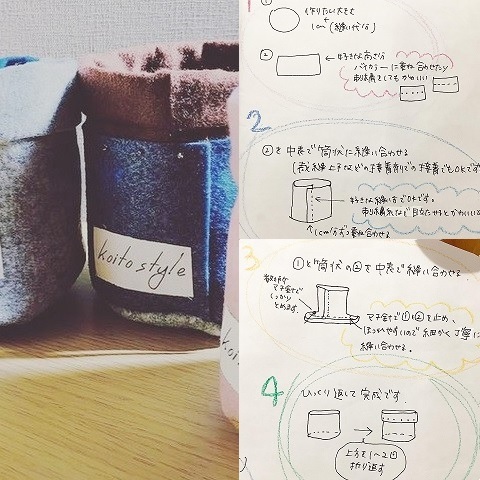 koito style
koit
1
①
作りたい大きさ
+
1cm(縫い代分)
②
← 好きな高さ分
バイカラーに重ね合わせたり
刺繍をしてもかわいい
2
②を中表で筒状に縫い合わせる
(裁縫上手などの接着剤での接着でもOKです)
好きな縫い方でOKです。
刺繍糸などで目立たせるとかわいい
↑1cm分ずつ重ね合わせる
3
①と筒状の②を中表で縫い合わせる
マチ針で
しっかり
とめます。
マチ針で①と②を止め、
ほつれやすいので細かく丁寧に
縫い合わせる。
4
ひっくり返して完成です。
→
上を1〜2回
折り返す